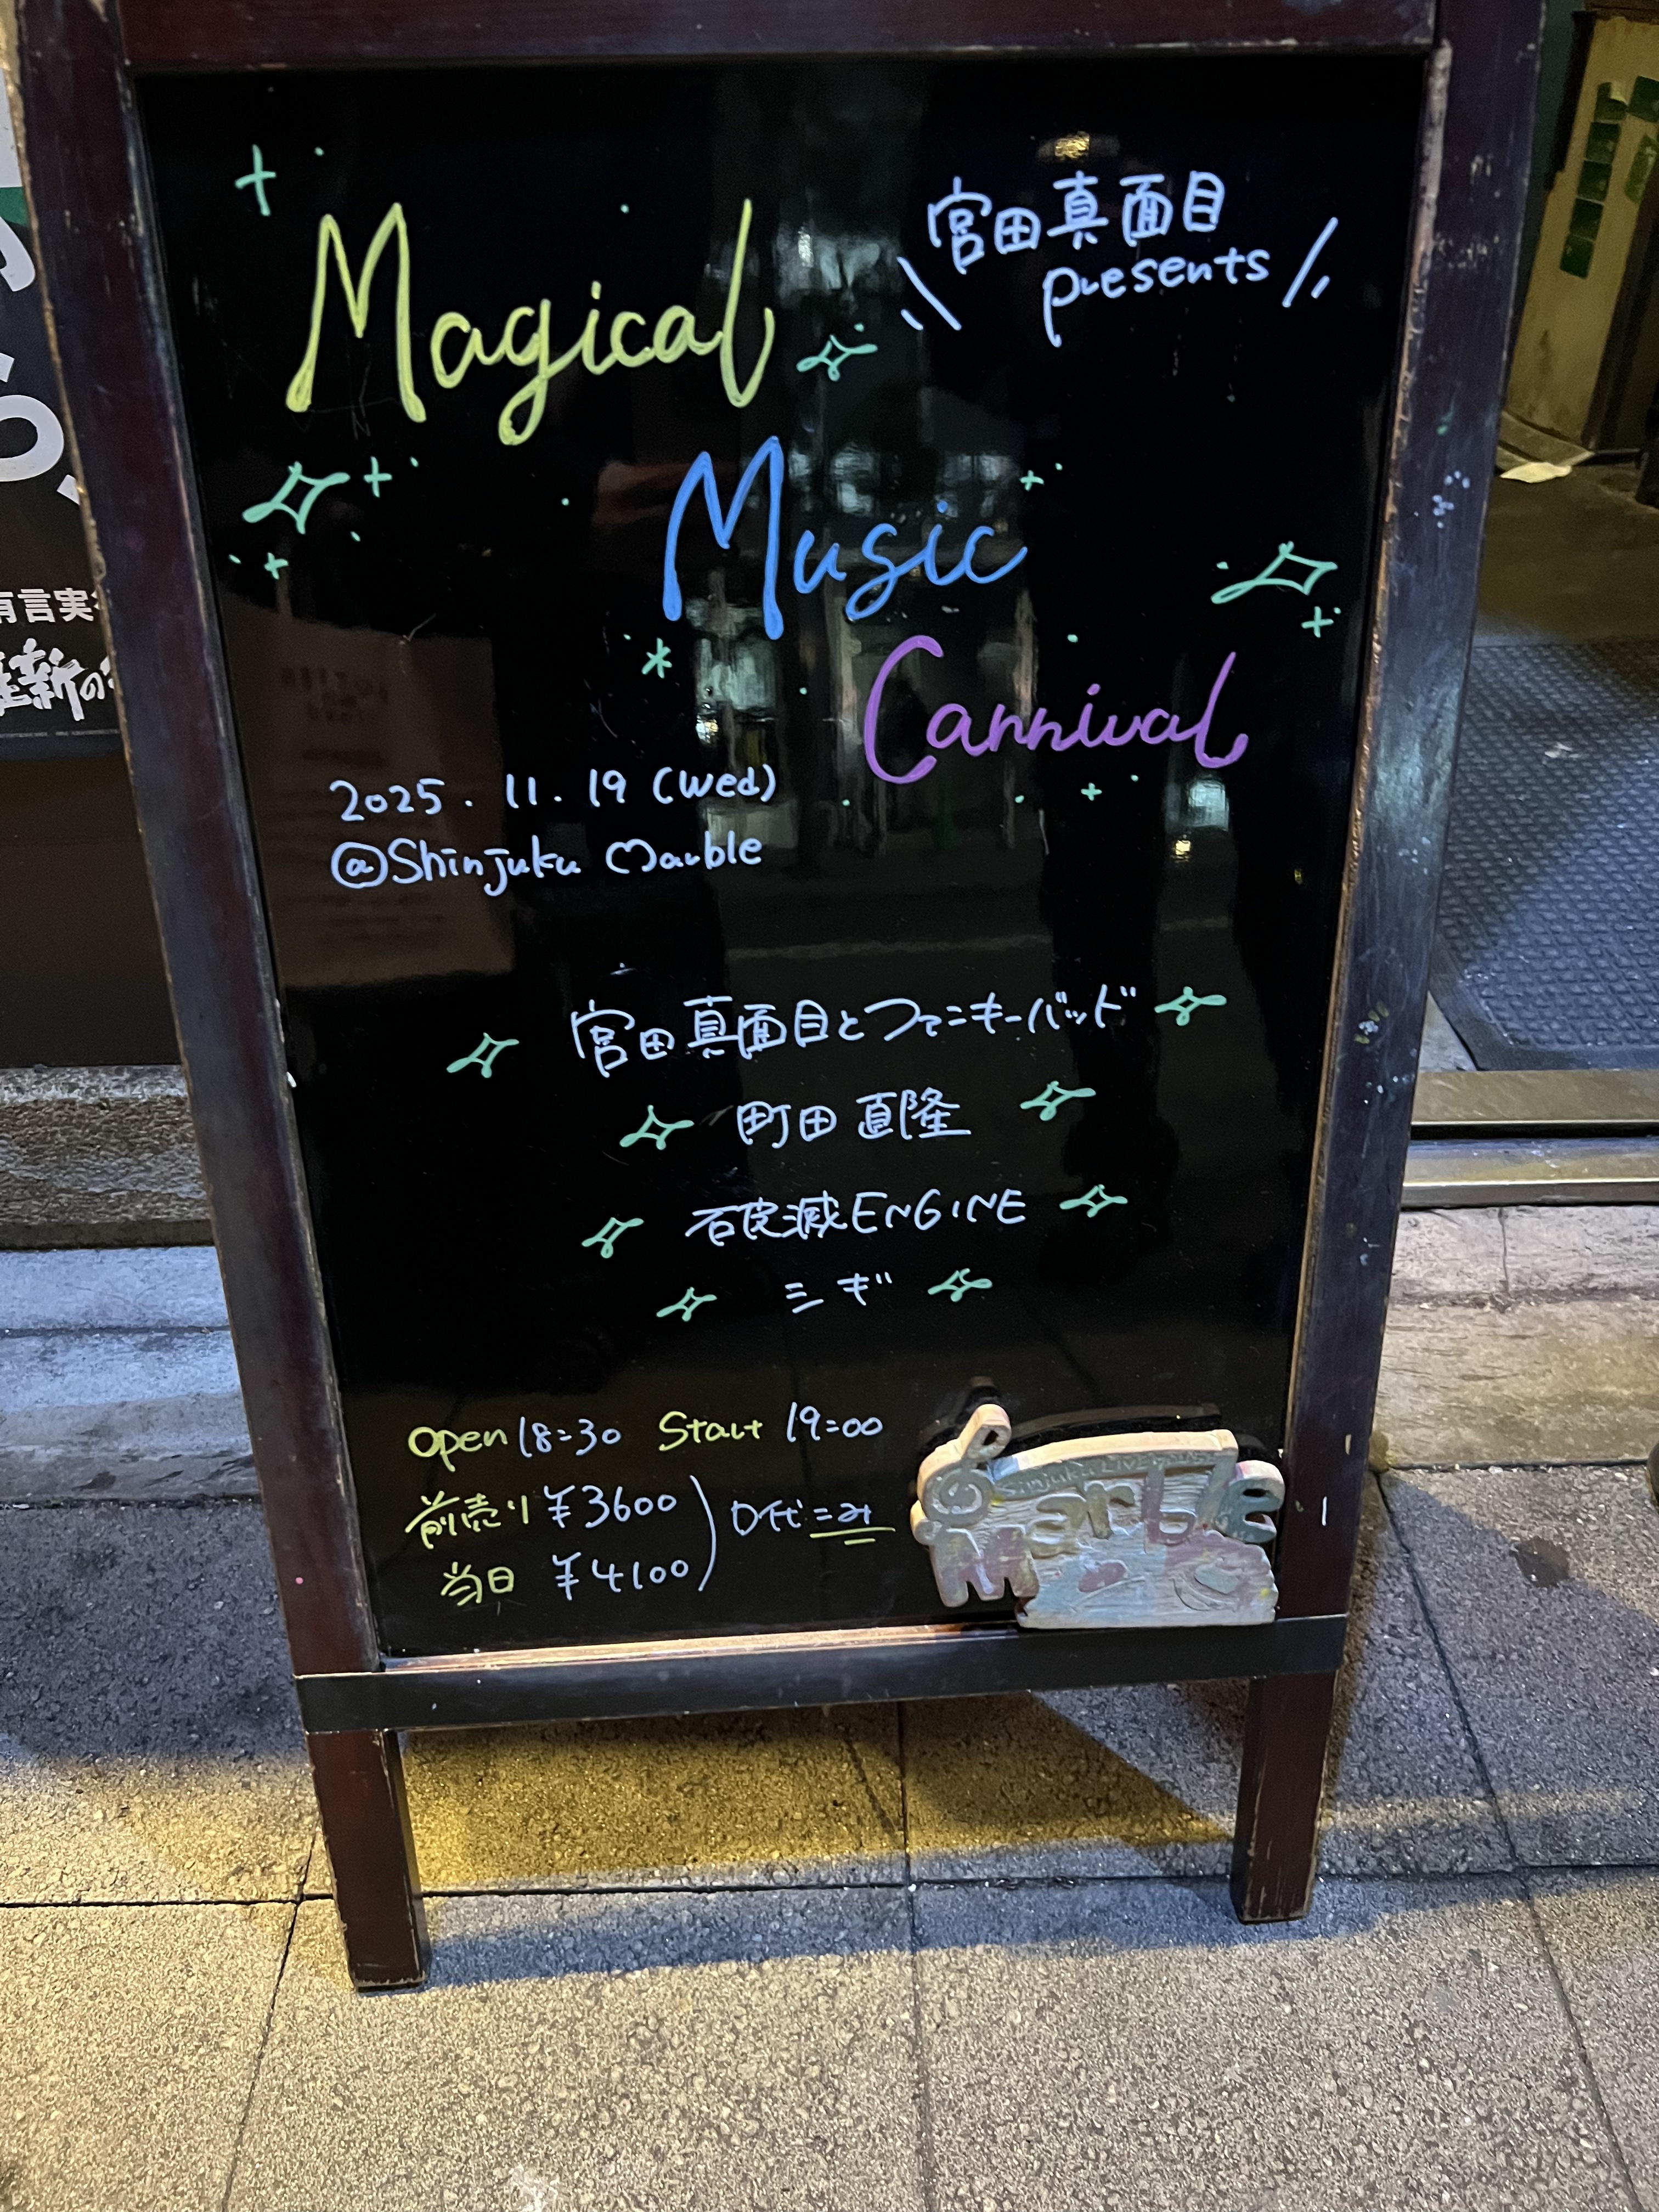 宮田真面目
presents
Magical
Music
Carnival
2025.11.19 (Wed)
@Shinjuku Marble
宮田真面目とファニキーバッド
町田直隆
破滅ENGINE
ミギ
Open 18:30 Start 19:00
前売り ¥3600
当日 ¥4100
D代=み
Marble
有言実
維新の